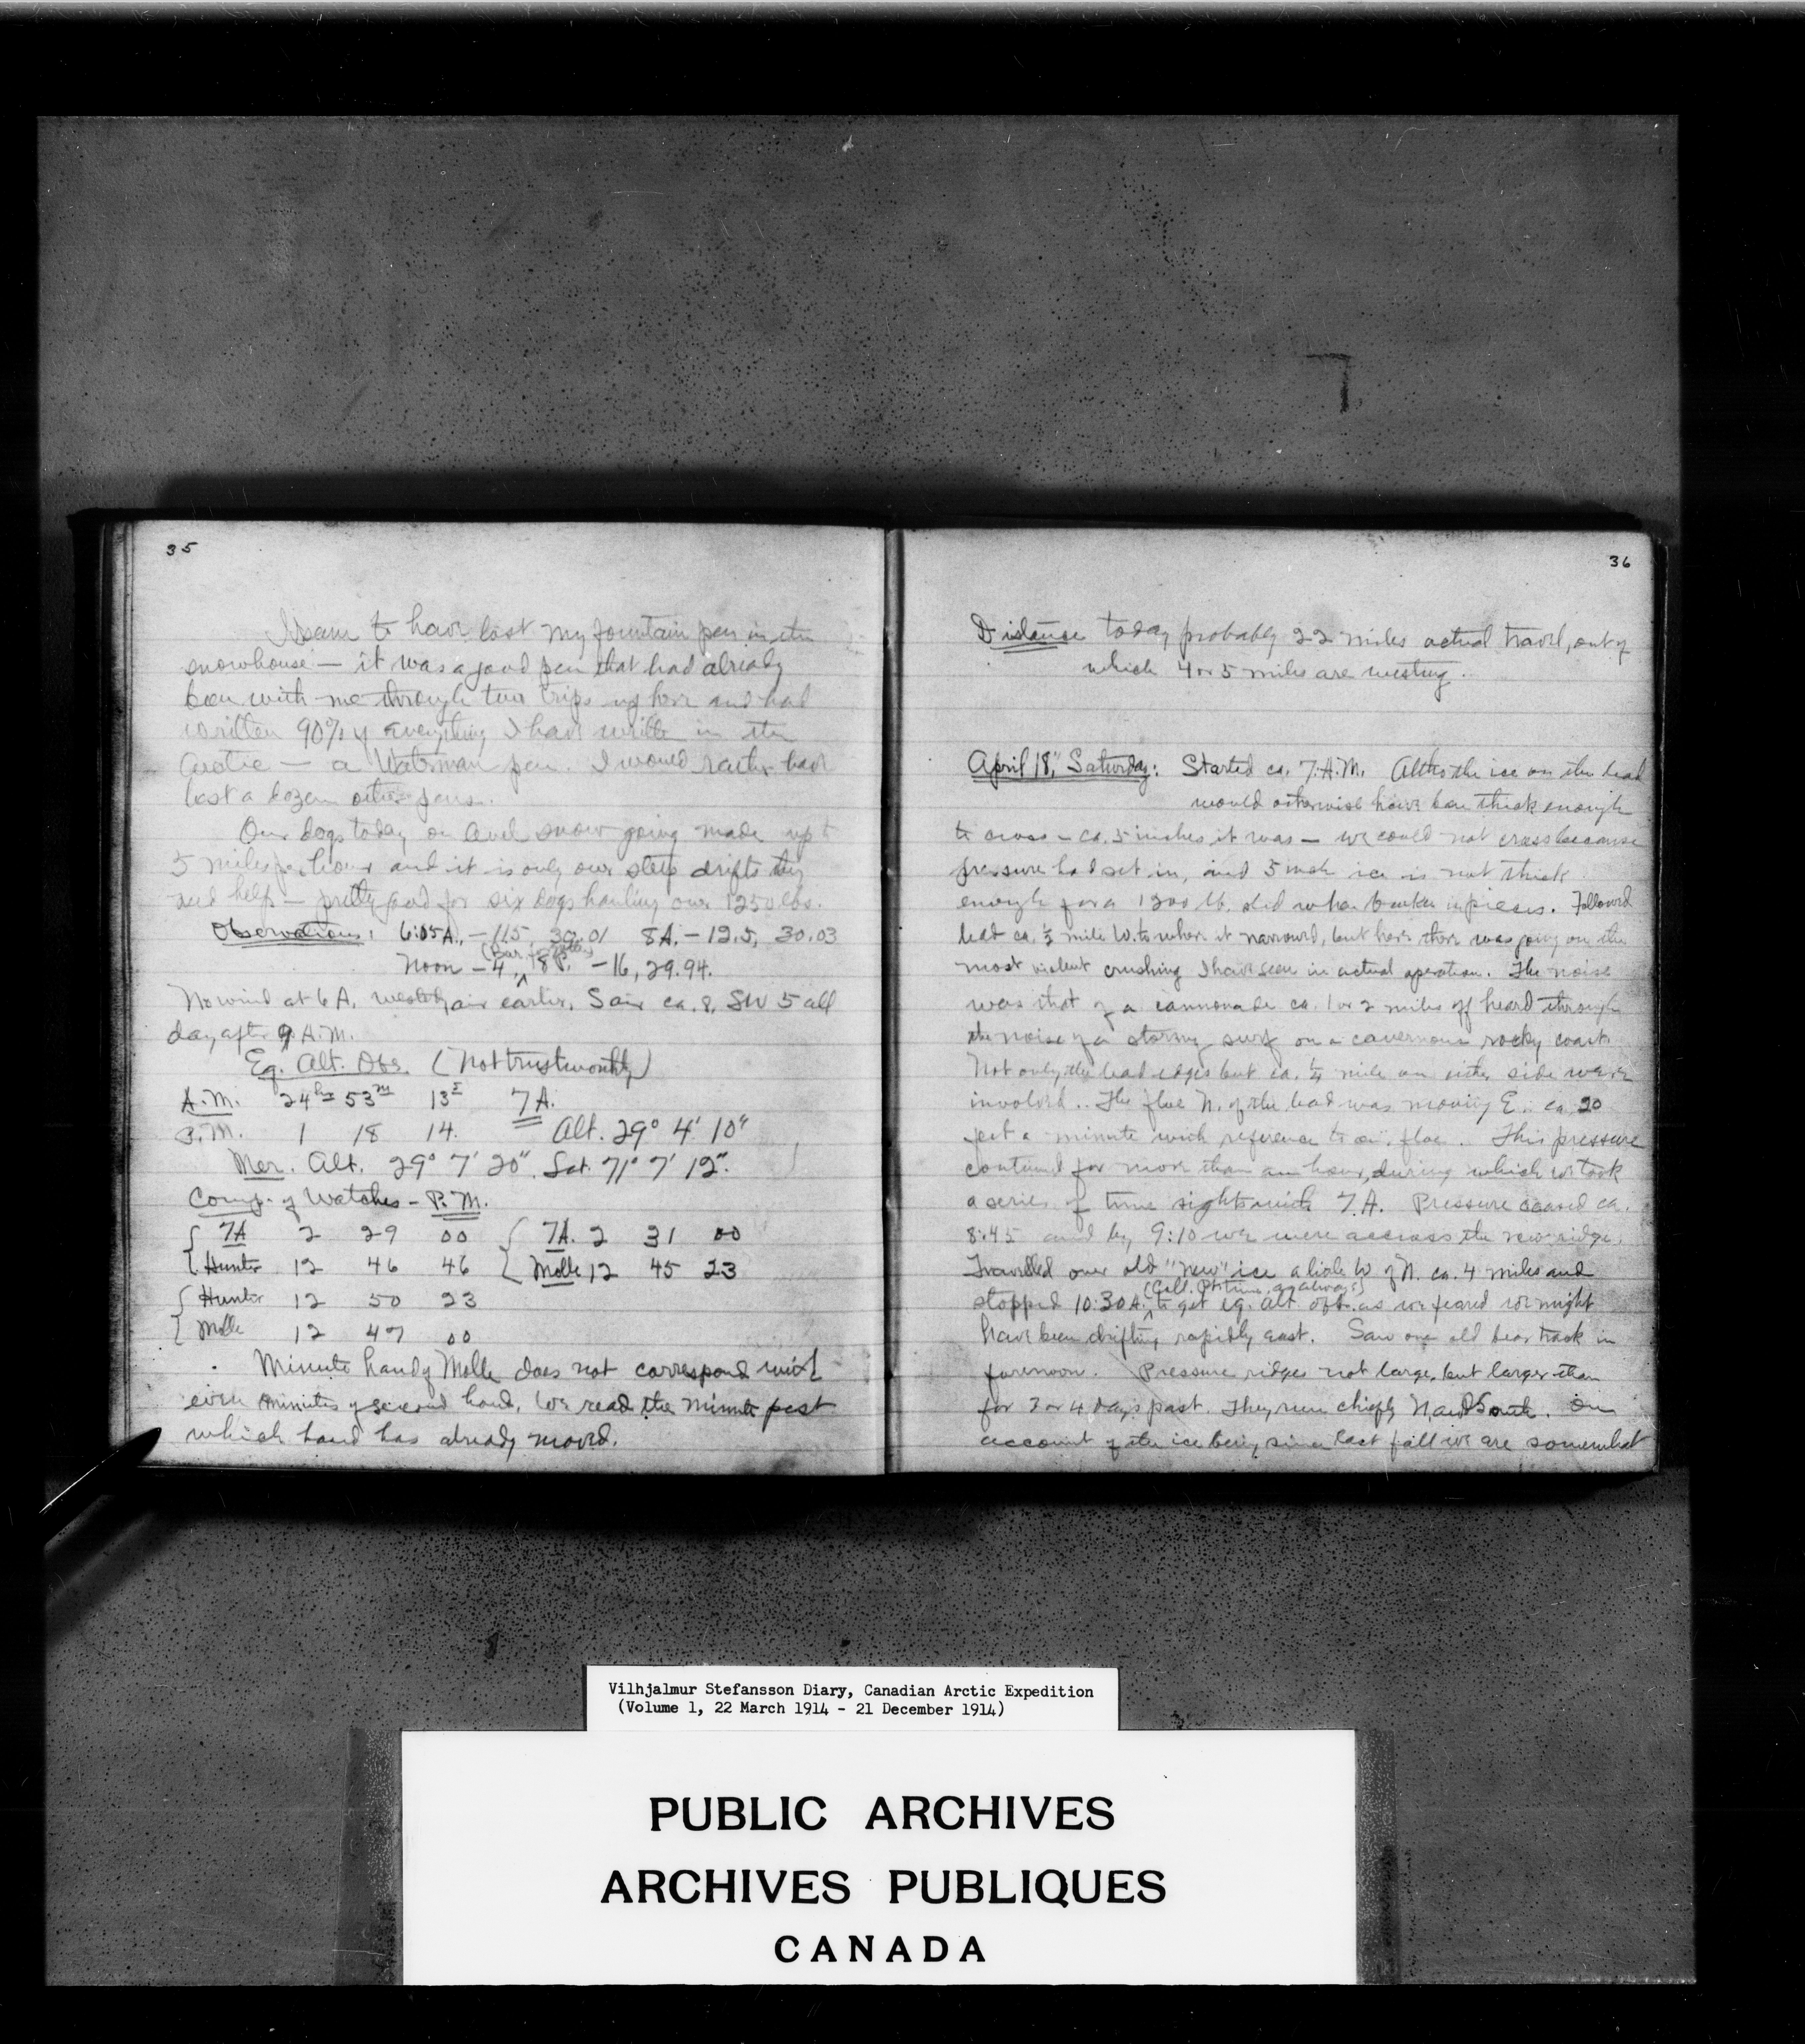 35
I seem to have lost my fountain pen in the
snowhouse — it was a good pen that had already
been with me through two trips up here and had
written 90% of everything I have written in the
Arctic — a Waterman pen. I would rather have
lost a dozen other pens.
Our dogs today on level snow going made up to
5 miles per hour and it is only over steep drifts they
need help — pretty good for six dogs hauling over 1250 lbs.
Observations: 6:05 A., -11.5, 30.01 8 A. - 12.5, 30.03
Noon - 4, 8 P. -16, 29.94.
No wind at 6 A. westerly air earlier, S air ca. 8, SW 5 all
day after 9 A.M.
Eq. Alt. Obs. (Not trustworthy)
A.M. 24hrs 53m 13s 7A.
P.M. 1 18 14. Alt. 29° 4' 10"
Mer. Alt. 29° 7' 20". Lat. 71° 7' 12".
Comp. of Watches - P.M.
7A 2 29 00 7A. 2 31 00
Hunter 12 46 46 Molle 12 45 23
Hunter 12 50 23
Molle 12 47 00
Minute hand of Molle does not correspond with
even minutes of second hand. We read the minute past
which hand has already moved.
36
Distance today probably 22 miles actual travel, out of
which 4 or 5 miles are westing.
April 18", Saturday: Started ca. 7 A.M. Altho the ice on the lead
would otherwise have been thick enough
to cross - ca. 5 inches it was — we could not cross because
pressure had set in, and 5 inch ice is not thick
enough for a 1200 lb. sled when broken in pieces. Followed
lead ca. ½ mile W. to where it narrowed, but here there was going on the
most violent crushing I have seen in actual operation. The noise
was that of a cannonade ca. 1 or 2 miles off heard through
the noise of a stormy surf on a cavernous rocky coast.
Not only the lead edges but ca. ¼ mile on either side were
involved. The floe N. of the lead was moving E. ca 20
feet a minute with reference to our floe. This pressure
continued for more than an hour, during which we took
a series of time sights with 7.A. Pressure ceased ca.
8:45 and by 9:10 we were across the new ridge.
Travelled over old "new" ice a little W of N. ca. 4 miles and
(Coll. Pt. time, as always)
stopped 10:30 A. to get eq. alt. obs. as we feared we might
have been drifting rapidly east. Saw one old bear track in
forenoon. Pressure ridges not large, but larger than
for 3 or 4 days past. They run chiefly N and South. On
account of the ice being since last fall we are somewhat
Vilhjalmur Stefansson Diary, Canadian Arctic Expedition
(Volume 1, 22 March 1914 - 21 December 1914)
PUBLIC ARCHIVES
ARCHIVES PUBLIQUES
CANADA